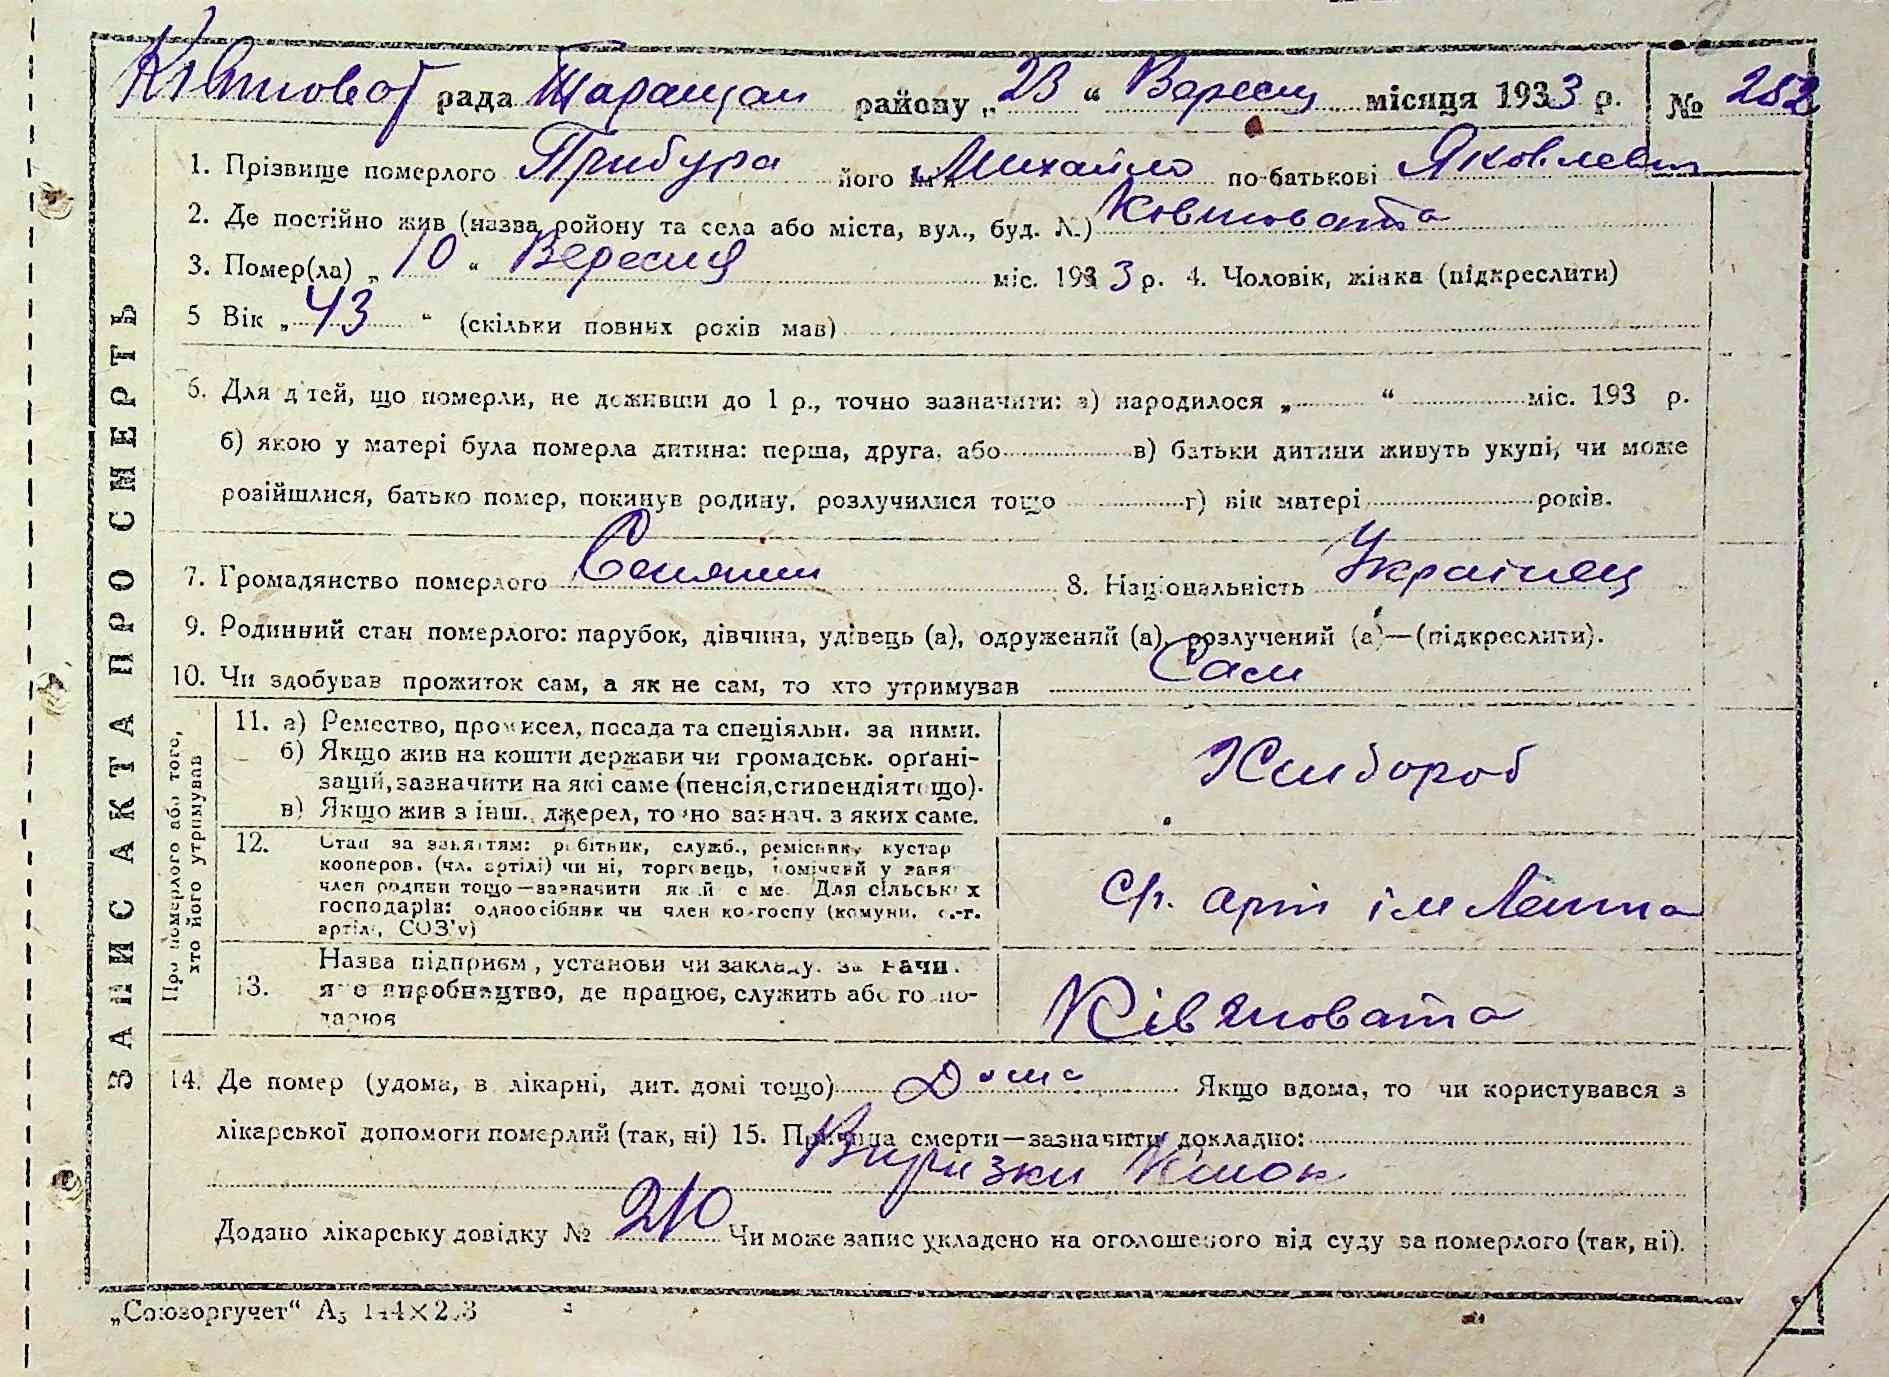 Ківшоват рада Таращан району „23“ Вересц місяця 1933 р. № 252
ЗАПИС АКТА ПРО СМЕРТЬ
1. Прізвище померлого Прибура його ім'я Михайло по-батькові Яковлевич
2. Де постійно жив (назва ройону та села або міста, вул., буд. №) Ковшовата
3. Помер(ла) „10“ Вересня міс. 1933 р. 4. Чоловік, жінка (підкреслити)
5 Вік „43“ (скільки повних років мав)
6. Для дітей, що померли, не доживши до 1 р., точно зазначити: а) народилося „ “ міс. 193 р.
б) якою у матері була померла дитина: перша, друга, або в) батьки дитини живуть укупі, чи може
розійшлися, батько помер, покинув родину, розлучилися тощо г) вік матері років.
7. Громадянство померлого Селянин 8. Національність Українец
9. Родинний стан померлого: парубок, дівчина, удівець (а), одружений (а), розлучений (а)—(підкреслити).
10. Чи здобував прожиток сам, а як не сам, то хто утримував Сам
Про померлого або того,
хто його утримував
11. а) Ремество, промисел, посада та спеціяльн. за ними.
б) Якщо жив на кошти держави чи громадськ. орґані-
зацій, зазначити на які саме (пенсія, стипендія тощо).
в) Якщо жив з інш. джерел, точно зазнач. з яких саме.
Хлибороб
12. Стан за заняттям: робітник, служб., ремісник, кустар
кооперов. (чл. артілі) чи ні, торговець, помічний у заня
член родини тощо—зазначити який саме. Для сільських
господарів: одноосібник чи член колгоспу (комуни, с.-г.
артілі, СОЗ'у)
Ср. арт ім Леніна
13. Назва підприєм., установи чи закладу, зазначи.
яке виробництво, де працює, служить або госпо-
дарює
Ківшовата
14. Де помер (удома, в лікарні, дит. домі тощо) Дома Якщо вдома, то чи користувався з
лікарської допомоги померлий (так, ні) 15. Причина смерти—зазначити докладно:
Кишок
Додано лікарську довідку № 210 Чи може запис укладено на оголошеного від суду за померлого (так, ні).
„Союзоргучет“ А5 144×203